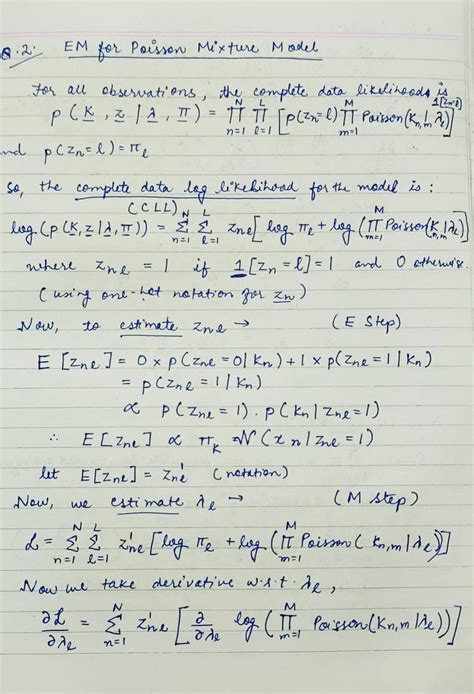 Q.2. EM for Poisson Mixture Model
For all observations, the complete data likelihood is
p(k, z | λ, π) = ∏_{n=1}^{N} ∏_{l=1}^{L} [p(z_n=l) ∏_{m=1}^{M} Poisson(k_{n,m} | λ_l)]^{1[z_n=l]}
and p(z_n=l) = π_l
So, the complete data log likelihood for the model is :
(CLL)
log(p(k, z | λ, π)) = Σ_{n=1}^{N} Σ_{l=1}^{L} z_{nl} [log π_l + log(∏_{m=1}^{M} Poisson(k_{n,m} | λ_l))]
where z_{nl} = 1 if 1[z_n=l] = 1 and 0 otherwise.
(using one-hot notation for z_n)
Now, to estimate z_{nl} → (E Step)
E[z_{nl}] = 0 × p(z_{nl}=0 | k_n) + 1 × p(z_{nl}=1 | k_n)
= p(z_{nl}=1 | k_n)
∝ p(z_{nl}=1) . p(k_n | z_{nl}=1)
∴ E[z_{nl}] ∝ π_k N(x_n | z_{nl}=1)
let E[z_{nl}] = z'_{nl} (notation)
Now, we estimate λ_l → (M Step)
L = Σ_{n=1}^{N} Σ_{l=1}^{L} z'_{nl} [log π_l + log(∏_{m=1}^{M} Poisson(k_{n,m} | λ_l))]
Now we take derivative w.r.t. λ_l,
∂L/∂λ_l = Σ_{n=1}^{N} z'_{nl} [∂/∂λ_l log(∏_{m=1}^{M} Poisson(k_{n,m} | λ_l))]